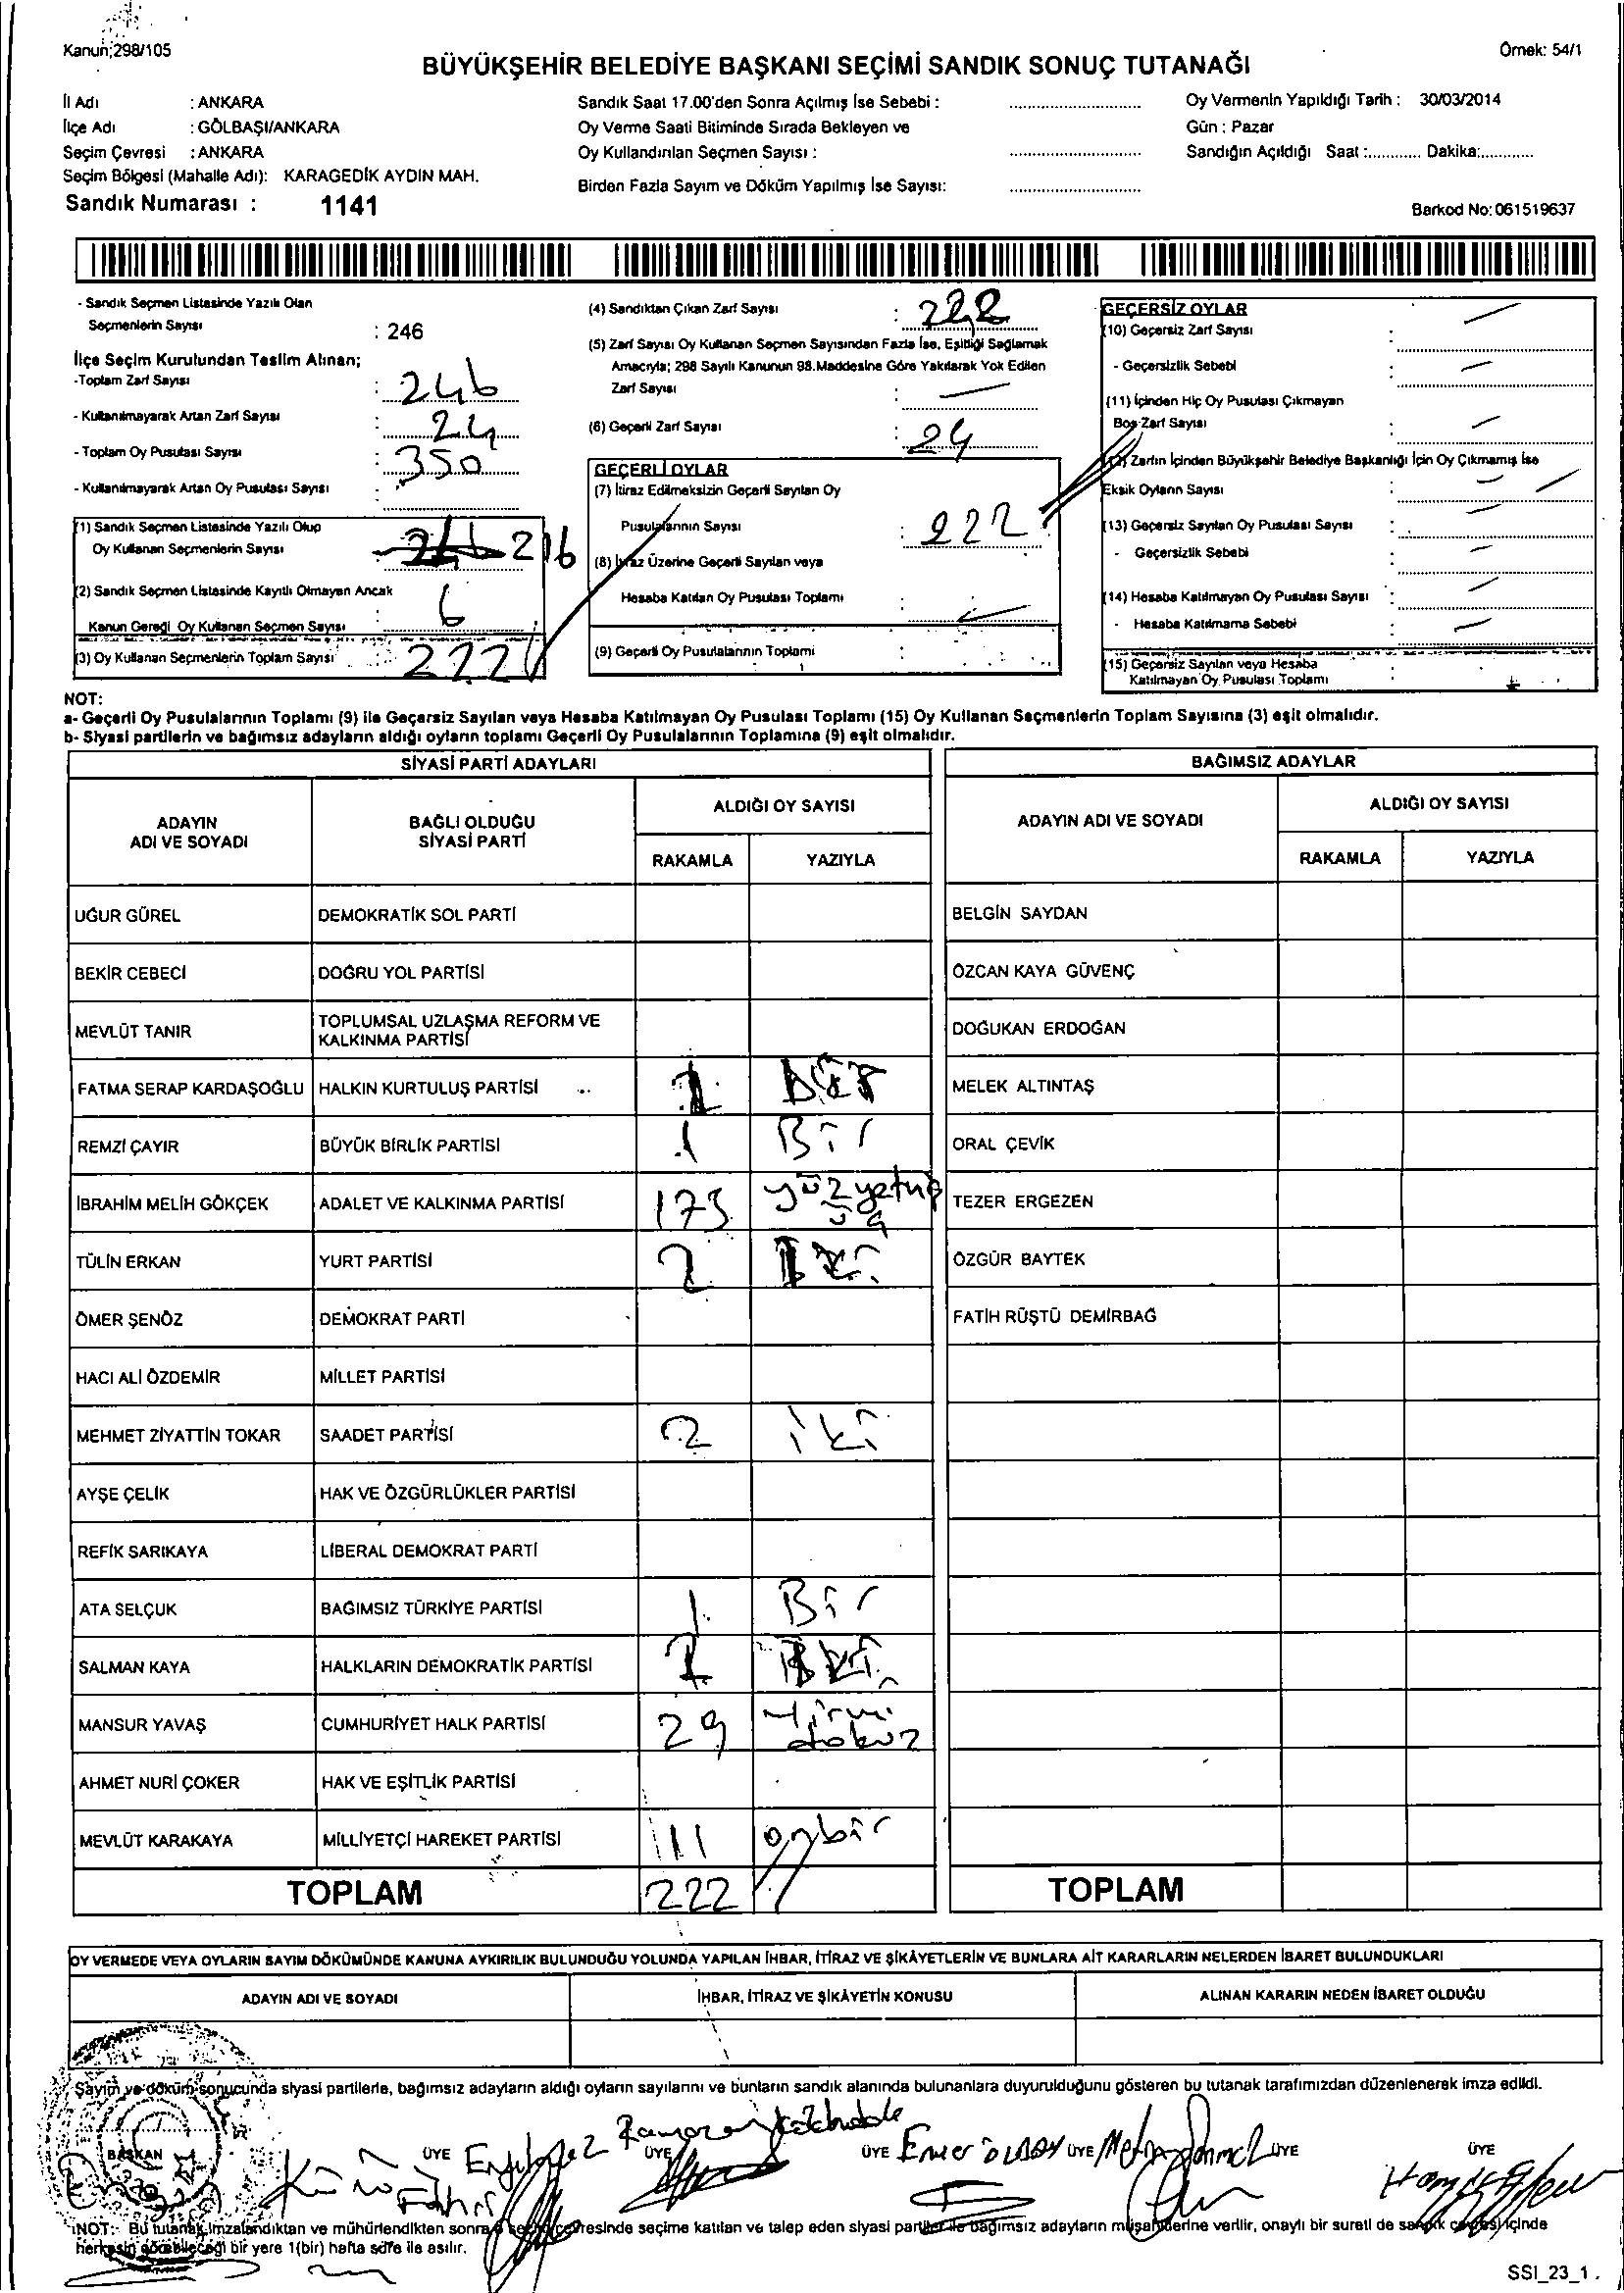 Kanun;298/105
Örnek: 54/1
BÜYÜKŞEHİR BELEDİYE BAŞKANI SEÇİMİ SANDIK SONUÇ TUTANAĞI
İl Adı : ANKARA
İlçe Adı : GÖLBAŞI/ANKARA
Seçim Çevresi : ANKARA
Seçim Bölgesi (Mahalle Adı): KARAGEDİK AYDIN MAH.
Sandık Numarası : 1141
Sandık Saat 17.00'den Sonra Açılmış İse Sebebi :
Oy Verme Saati Bitiminde Sırada Bekleyen ve
Oy Kullandırılan Seçmen Sayısı :
Birden Fazla Sayım ve Döküm Yapılmış İse Sayısı:
Oy Vermenin Yapıldığı Tarih : 30/03/2014
Gün : Pazar
Sandığın Açıldığı Saat :............ Dakika:............
Barkod No: 061519637
- Sandık Seçmen Listesinde Yazılı Olan
Seçmenlerin Sayısı : 246
İlçe Seçim Kurulundan Teslim Alınan;
-Toplam Zarf Sayısı : 246
- Kullanılmayarak Artan Zarf Sayısı : 24
- Toplam Oy Pusulası Sayısı : 350
- Kullanılmayarak Artan Oy Pusulası Sayısı :
(1) Sandık Seçmen Listesinde Yazılı Olup
Oy Kullanan Seçmenlerin Sayısı : 216
(2) Sandık Seçmen Listesinde Kayıtlı Olmayan Ancak
Kanun Gereği Oy Kullanan Seçmen Sayısı : 6
(3) Oy Kullanan Seçmenlerin Toplam Sayısı : 222
(4) Sandıktan Çıkan Zarf Sayısı : 222
(5) Zarf Sayısı Oy Kullanan Seçmen Sayısından Fazla İse, Eşitliği Sağlamak
Amacıyla; 298 Sayılı Kanunun 98.Maddesine Göre Yakılarak Yok Edilen
Zarf Sayısı : —
(6) Geçerli Zarf Sayısı : 24
GEÇERLİ OYLAR
(7) İtiraz Edilmeksizin Geçerli Sayılan Oy
Pusulalarının Sayısı : 222
(8) İtiraz Üzerine Geçerli Sayılan veya
Hesaba Katılan Oy Pusulası Toplamı : —
(9) Geçerli Oy Pusulalarının Toplamı :
GEÇERSİZ OYLAR
(10) Geçersiz Zarf Sayısı : —
- Geçersizlik Sebebi : —
(11) İçinden Hiç Oy Pusulası Çıkmayan
Boş Zarf Sayısı : —
(12) Zarfın İçinden Büyükşehir Belediye Başkanlığı İçin Oy Çıkmamış İse
Eksik Oyların Sayısı : —
(13) Geçersiz Sayılan Oy Pusulası Sayısı : —
- Geçersizlik Sebebi : —
(14) Hesaba Katılmayan Oy Pusulası Sayısı : —
- Hesaba Katılmama Sebebi : —
(15) Geçersiz Sayılan veya Hesaba
Katılmayan Oy Pusulası Toplamı :
NOT:
a- Geçerli Oy Pusulalarının Toplamı (9) ile Geçersiz Sayılan veya Hesaba Katılmayan Oy Pusulası Toplamı (15) Oy Kullanan Seçmenlerin Toplam Sayısına (3) eşit olmalıdır.
b- Siyasi partilerin ve bağımsız adayların aldığı oyların toplamı Geçerli Oy Pusulalarının Toplamına (9) eşit olmalıdır.
SİYASİ PARTİ ADAYLARI
ADAYIN ADI VE SOYADI BAĞLI OLDUĞU SİYASİ PARTİ ALDIĞI OY SAYISI
RAKAMLA YAZIYLA
UĞUR GÜREL DEMOKRATİK SOL PARTİ
BEKİR CEBECİ DOĞRU YOL PARTİSİ
MEVLÜT TANIR TOPLUMSAL UZLAŞMA REFORM VE KALKINMA PARTİSİ
FATMA SERAP KARDAŞOĞLU HALKIN KURTULUŞ PARTİSİ 1 Bir
REMZİ ÇAYIR BÜYÜK BİRLİK PARTİSİ 1 Bir
İBRAHİM MELİH GÖKÇEK ADALET VE KALKINMA PARTİSİ 173 yüzyetmiş üç
TÜLİN ERKAN YURT PARTİSİ 2 İki
ÖMER ŞENÖZ DEMOKRAT PARTİ
HACI ALİ ÖZDEMİR MİLLET PARTİSİ
MEHMET ZİYATTİN TOKAR SAADET PARTİSİ 2 iki
AYŞE ÇELİK HAK VE ÖZGÜRLÜKLER PARTİSİ
REFİK SARIKAYA LİBERAL DEMOKRAT PARTİ
ATA SELÇUK BAĞIMSIZ TÜRKİYE PARTİSİ 1 Bir
SALMAN KAYA HALKLARIN DEMOKRATİK PARTİSİ
MANSUR YAVAŞ CUMHURİYET HALK PARTİSİ 29 Yirmi dokuz
AHMET NURİ ÇOKER HAK VE EŞİTLİK PARTİSİ
MEVLÜT KARAKAYA MİLLİYETÇİ HAREKET PARTİSİ 11 onbir
TOPLAM 222
BAĞIMSIZ ADAYLAR
ADAYIN ADI VE SOYADI ALDIĞI OY SAYISI
RAKAMLA YAZIYLA
BELGİN SAYDAN
ÖZCAN KAYA GÜVENÇ
DOĞUKAN ERDOĞAN
MELEK ALTINTAŞ
ORAL ÇEVİK
TEZER ERGEZEN
ÖZGÜR BAYTEK
FATİH RÜŞTÜ DEMİRBAĞ
TOPLAM
OY VERMEDE VEYA OYLARIN SAYIM DÖKÜMÜNDE KANUNA AYKIRILIK BULUNDUĞU YOLUNDA YAPILAN İHBAR, İTİRAZ VE ŞİKÂYETLERİN VE BUNLARA AİT KARARLARIN NELERDEN İBARET BULUNDUKLARI
ADAYIN ADI VE SOYADI İHBAR, İTİRAZ VE ŞİKÂYETİN KONUSU ALINAN KARARIN NEDEN İBARET OLDUĞU
Sayım ve döküm sonucunda siyasi partilerle, bağımsız adayların aldığı oyların sayılarını ve bunların sandık alanında bulunanlara duyurulduğunu gösteren bu tutanak tarafımızdan düzenlenerek imza edildi.
BAŞKAN ÜYE ÜYE ÜYE ÜYE ÜYE ÜYE
NOT: Bu tutanak imzalandıktan ve mühürlendikten sonra seçim çevresinde seçime katılan ve talep eden siyasi partiler ile bağımsız adayların müşahitlerine verilir, onaylı bir sureti de sandık çevresi içinde
herkesin görebileceği bir yere 1(bir) hafta süre ile asılır.
SSI_23_1 .